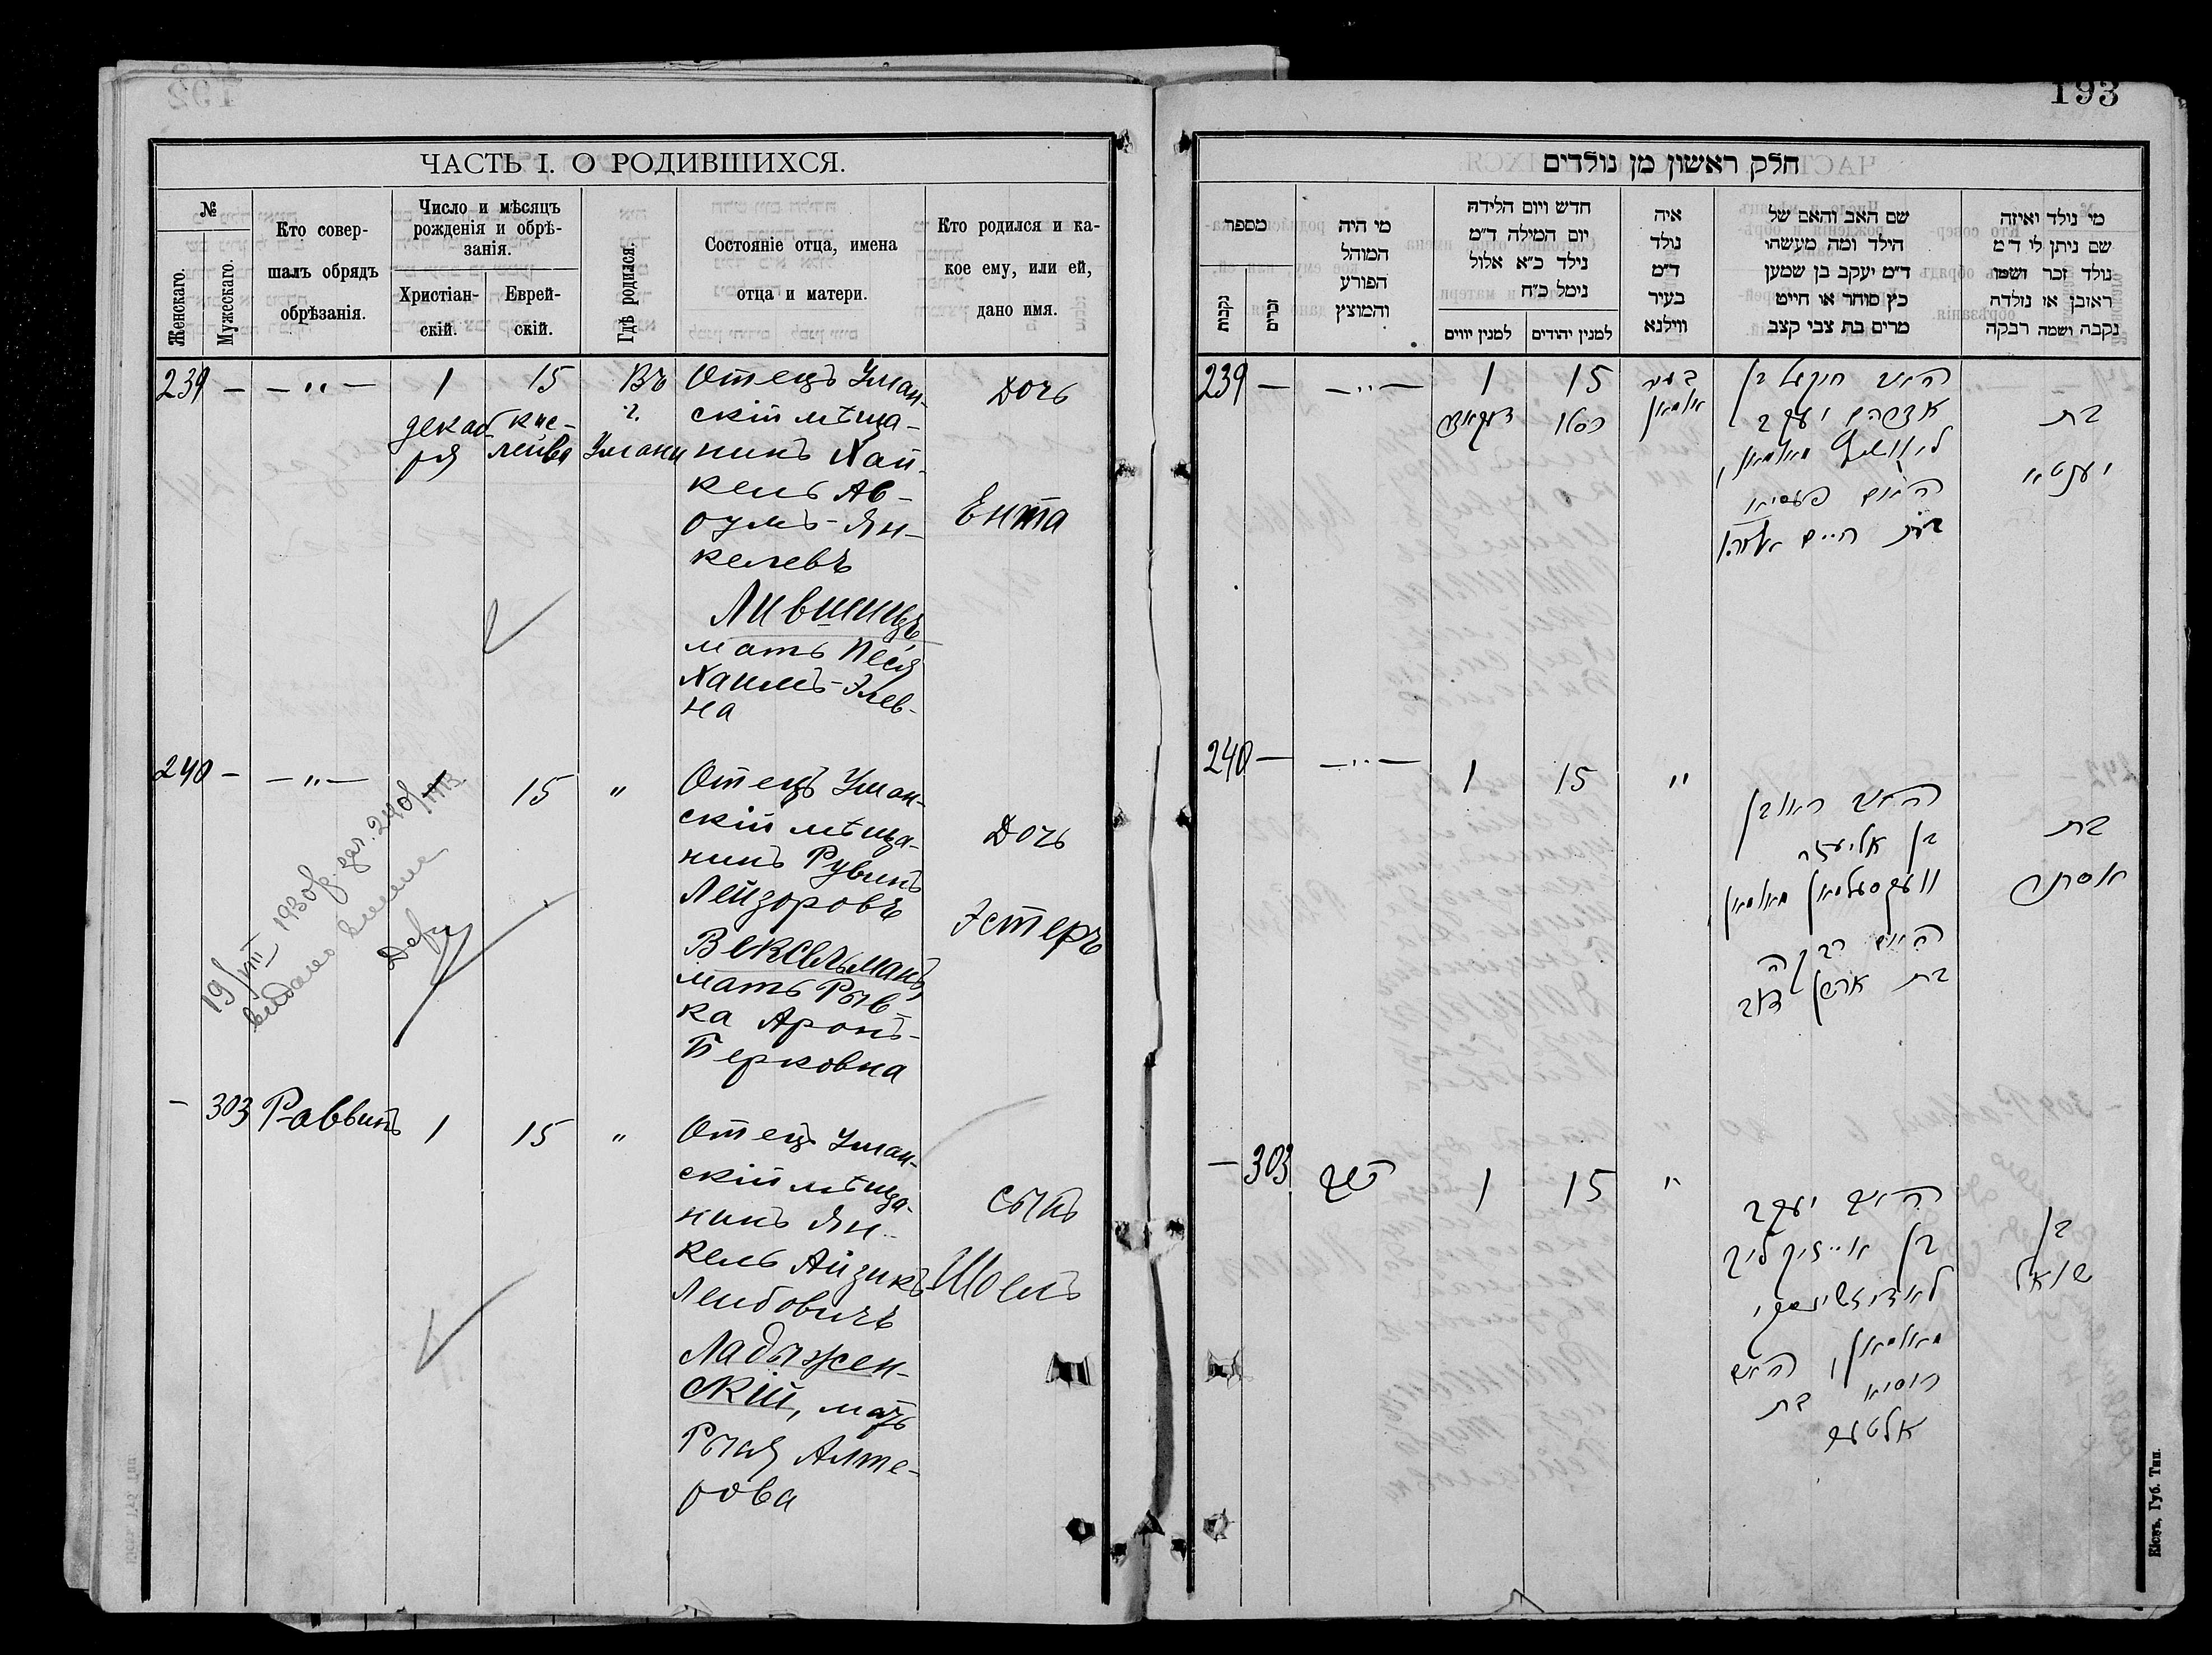 193
ЧАСТЬ I. О РОДИВШИХСЯ.
№
Женскаго.
Мужескаго.
Кто совер-
шалъ обрядъ
обрѣзанія.
Число и мѣсяцъ
рожденія и обрѣ-
занія.
Христіан-
скій.
Еврей-
скій.
Гдѣ родился.
Состояніе отца, имена
отца и матери.
Кто родился и ка-
кое ему, или ей,
дано имя.
239 — — " —
1
декаб-
ря
15
кис-
лейва
Въ
г.
Умани
Отецъ Уман-
скій мѣща-
нинъ Хай-
кель Ав-
румъ-Ян-
келевъ
Лившицъ,
мать Песя
Хаимъ-Элев-
на
Дочь
Ента
240 — — " —
1
15
"
Отецъ Уман-
скій мѣща-
нинъ Рувинъ
Лейзоровъ
Вексельманъ,
мать Рыв-
ка Аронъ-
Берковна
Дочь
Эстеръ
19/VIII 1930
— 303 Раввинъ
1
15
"
Отецъ Уман-
скій мѣща-
нинъ Ян-
кель Айзикъ
Лейбовичъ
Ладыжен-
скій, мать
Рыся Алте-
рова
сынъ
Шоелъ
חלק ראשון מן נולדים
מספר
נקבות
זכרים
מי היה
המוהל
הפורע
והמוצץ
חדש ויום הלידה
יום המילה ד"מ
נילד כ"א אלול
נימל כ"ח
למנין יווים
למנין יהודים
איה
נולד
ד"מ
בעיר
ווילנא
שם האב והאם של
הילד ומה מעשהו
ד"מ יעקב בן שמען
כץ סוחר או חייט
מרים בת צבי קצב
מי נולד ואיזה
שם ניתן לו ד"מ
נולד זכר ושמו
ראובן או נולדה
נקבה ושמה רבקה
239 — — " —
1
15
כסלו
בעיר
אומאן
בת
יענטא
240 — — " —
1
15
"
האב ראובן
בן אליעזר
וועקסעלמאן מאומאן
האם רבקה
בת אהרן דוב
בת
אסתר
— 303
הרב
1
15
"
האב יעקב
בן אייזיק ליב
לאדיזשינסקי
מאומאן, האם
רוסיא בת
אלטער
בן
שואל
Кіевъ, Губ. Тип.